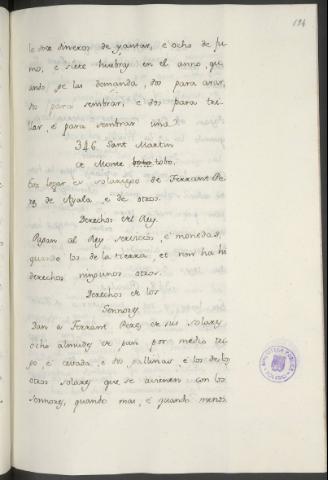 194
le doze dineros de yantar, e ocho de fu-
mo, e siete huebras en el anno, qu-
ando se las demanda, dos para arar,
dos para sembrar, e dos para tri-
llar, e para sembrar una.
346 Sant Martin
de Monte lobo.
Este logar es solariego de Ferrant Pe-
rez de Ayala, e de otros.
Derechos del Rey.
Pagan al Rey servicios, e monedas,
quando los de la tierra, et non ha hi
derechos ningunos otros.
Derechos de los
Sennores.
Dan a Ferrant Perez de sus solares
ocho almudes de pan por medio tri-
go, e cevada, e dos gallinas, e los de los
otros solares que se avienen con los
Sennores, quando mas, e quando menos.
BIBLIOTECA PUBLICA
TOLEDO